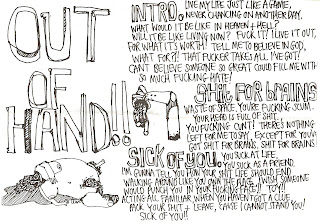 OUT
OF
HAND!!
INTRO.
LIVE MY LIFE JUST LIKE A GAME,
NEVER CHANGING ON ANOTHER DAY.
WHAT WOULD IT BE LIKE IN HEAVEN + HELL?
WILL IT BE LIKE LIVING NOW? FUCK IT! I LIVE IT OUT,
FOR WHAT IT'S WORTH! TELL ME TO BELIEVE IN GOD,
WHAT FOR?! THAT FUCKER TAKES ALL I'VE GOT!
CAN'T BELIEVE SOMEONE SO GREAT COULD FILL ME WITH
SO MUCH FUCKING HATE!
SHIT FOR BRAINS
WASTE OF SPACE, YOU'RE FUCKING SCUM.
YOUR HEAD IS FULL OF SHIT,
YOU FUCKING CUNT! THERE'S NOTHING
LEFT FOR ME TO SAY, EXCEPT FOR YOU'VE
GOT SHIT FOR BRAINS. SHIT FOR BRAINS
SICK OF YOU.
YOU SUCK AT LIFE,
YOU SUCK AS A FRIEND.
I'M GUNNA TELL YOU HOW YOUR SHIT LIFE SHOULD END
WALKING AROUND LIKE YOU OWN THE PLACE. WISH SOMEONE
WOULD PUNCH YOU IN YOUR FUCKING FACE!! TOY!!
ACTING ALL FAMILIAR WHEN YOU HAVEN'T GOT A CLUE,
PACK YOUR SHIT + LEAVE, CAUSE I CANNOT STAND YOU!!
SICK OF YOU!!